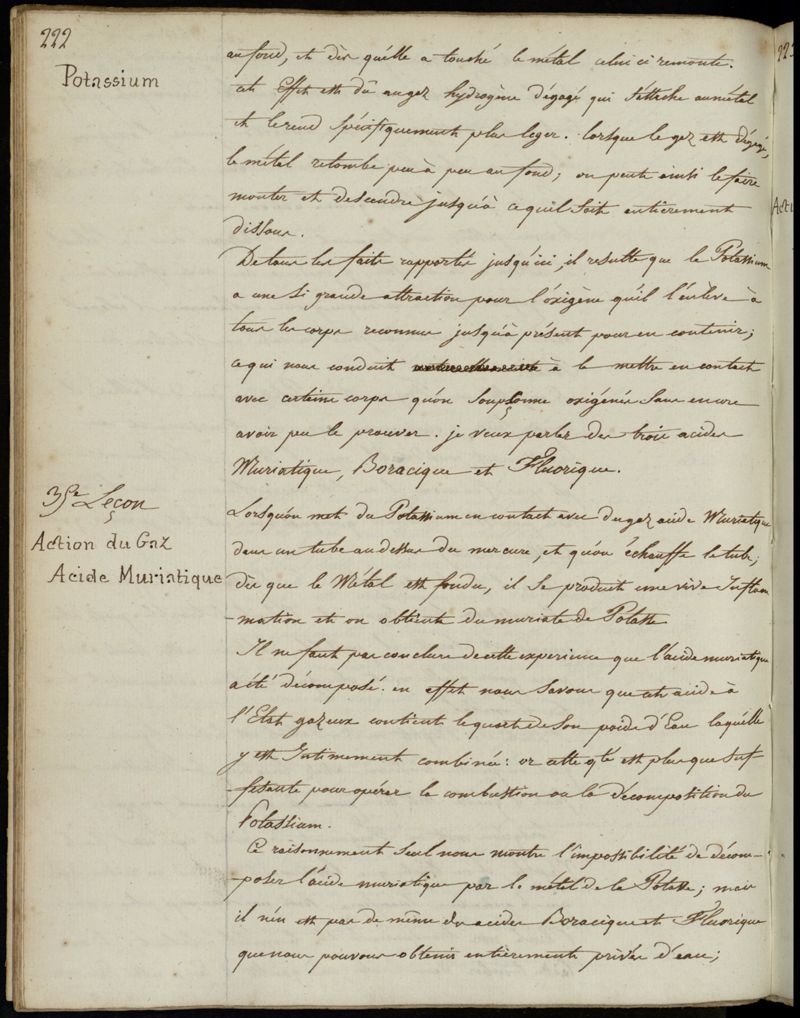 222
Potassium
au fond, et dès qu'elle a touché le métal celui ci remonte.
cet Effet est dû au gaz hydrogène dégagé qui s'attache au métal
et le rend spécifiquement plus leger. lorsque le gaz est dégagé,
le métal retombe peu à peu au fond; on peut ainsi le faire
monter et descendre jusqu'à ce qu'il soit entièrement
dissous.
De tous les faits rapportés jusqu'ici, il resulte que le Potassium
a une si grande attraction pour l'oxigène qu'il l'enlève à
tous les corps reconnus jusqu'à présent pour en contenir;
ce qui nous conduit à le mettre en contact
avec certains corps qu'on soupçonne oxigénés sans encore
avoir pu le prouver. je veux parler des trois acides
Muriatique, Boracique et Fluorique.
35e Leçon
Action du Gaz
Acide Muriatique
Lorsqu'on met du Potassium en contact avec du gaz acide Muriatique
dans un tube au dessus du mercure, et qu'on échauffe le tube;
dès que le Métal est fondu, il se produit une vive Inflam
-mation et on obtient du muriate de Potasse
Il ne faut pas conclure de cette experience que l'acide muriatique
a été décomposé. en effet nous savons que cet acide à
l'Etat gazeux contient le quart de son poids d'Eau laquélle
y est Intimement combinée: or cette qté est plus que suf-
-fisante pour opérer la combustion ou la décomposition du
Potassium.
Ce raisonnement seul nous montre l'impossibilité de décom-
-poser l'acide muriatique par le métal de la Potasse; mais
il n'en est pas de même des acides Boracique et Fluorique
que nous pouvons obtenir entièrement privés d'eau;
223
Acti